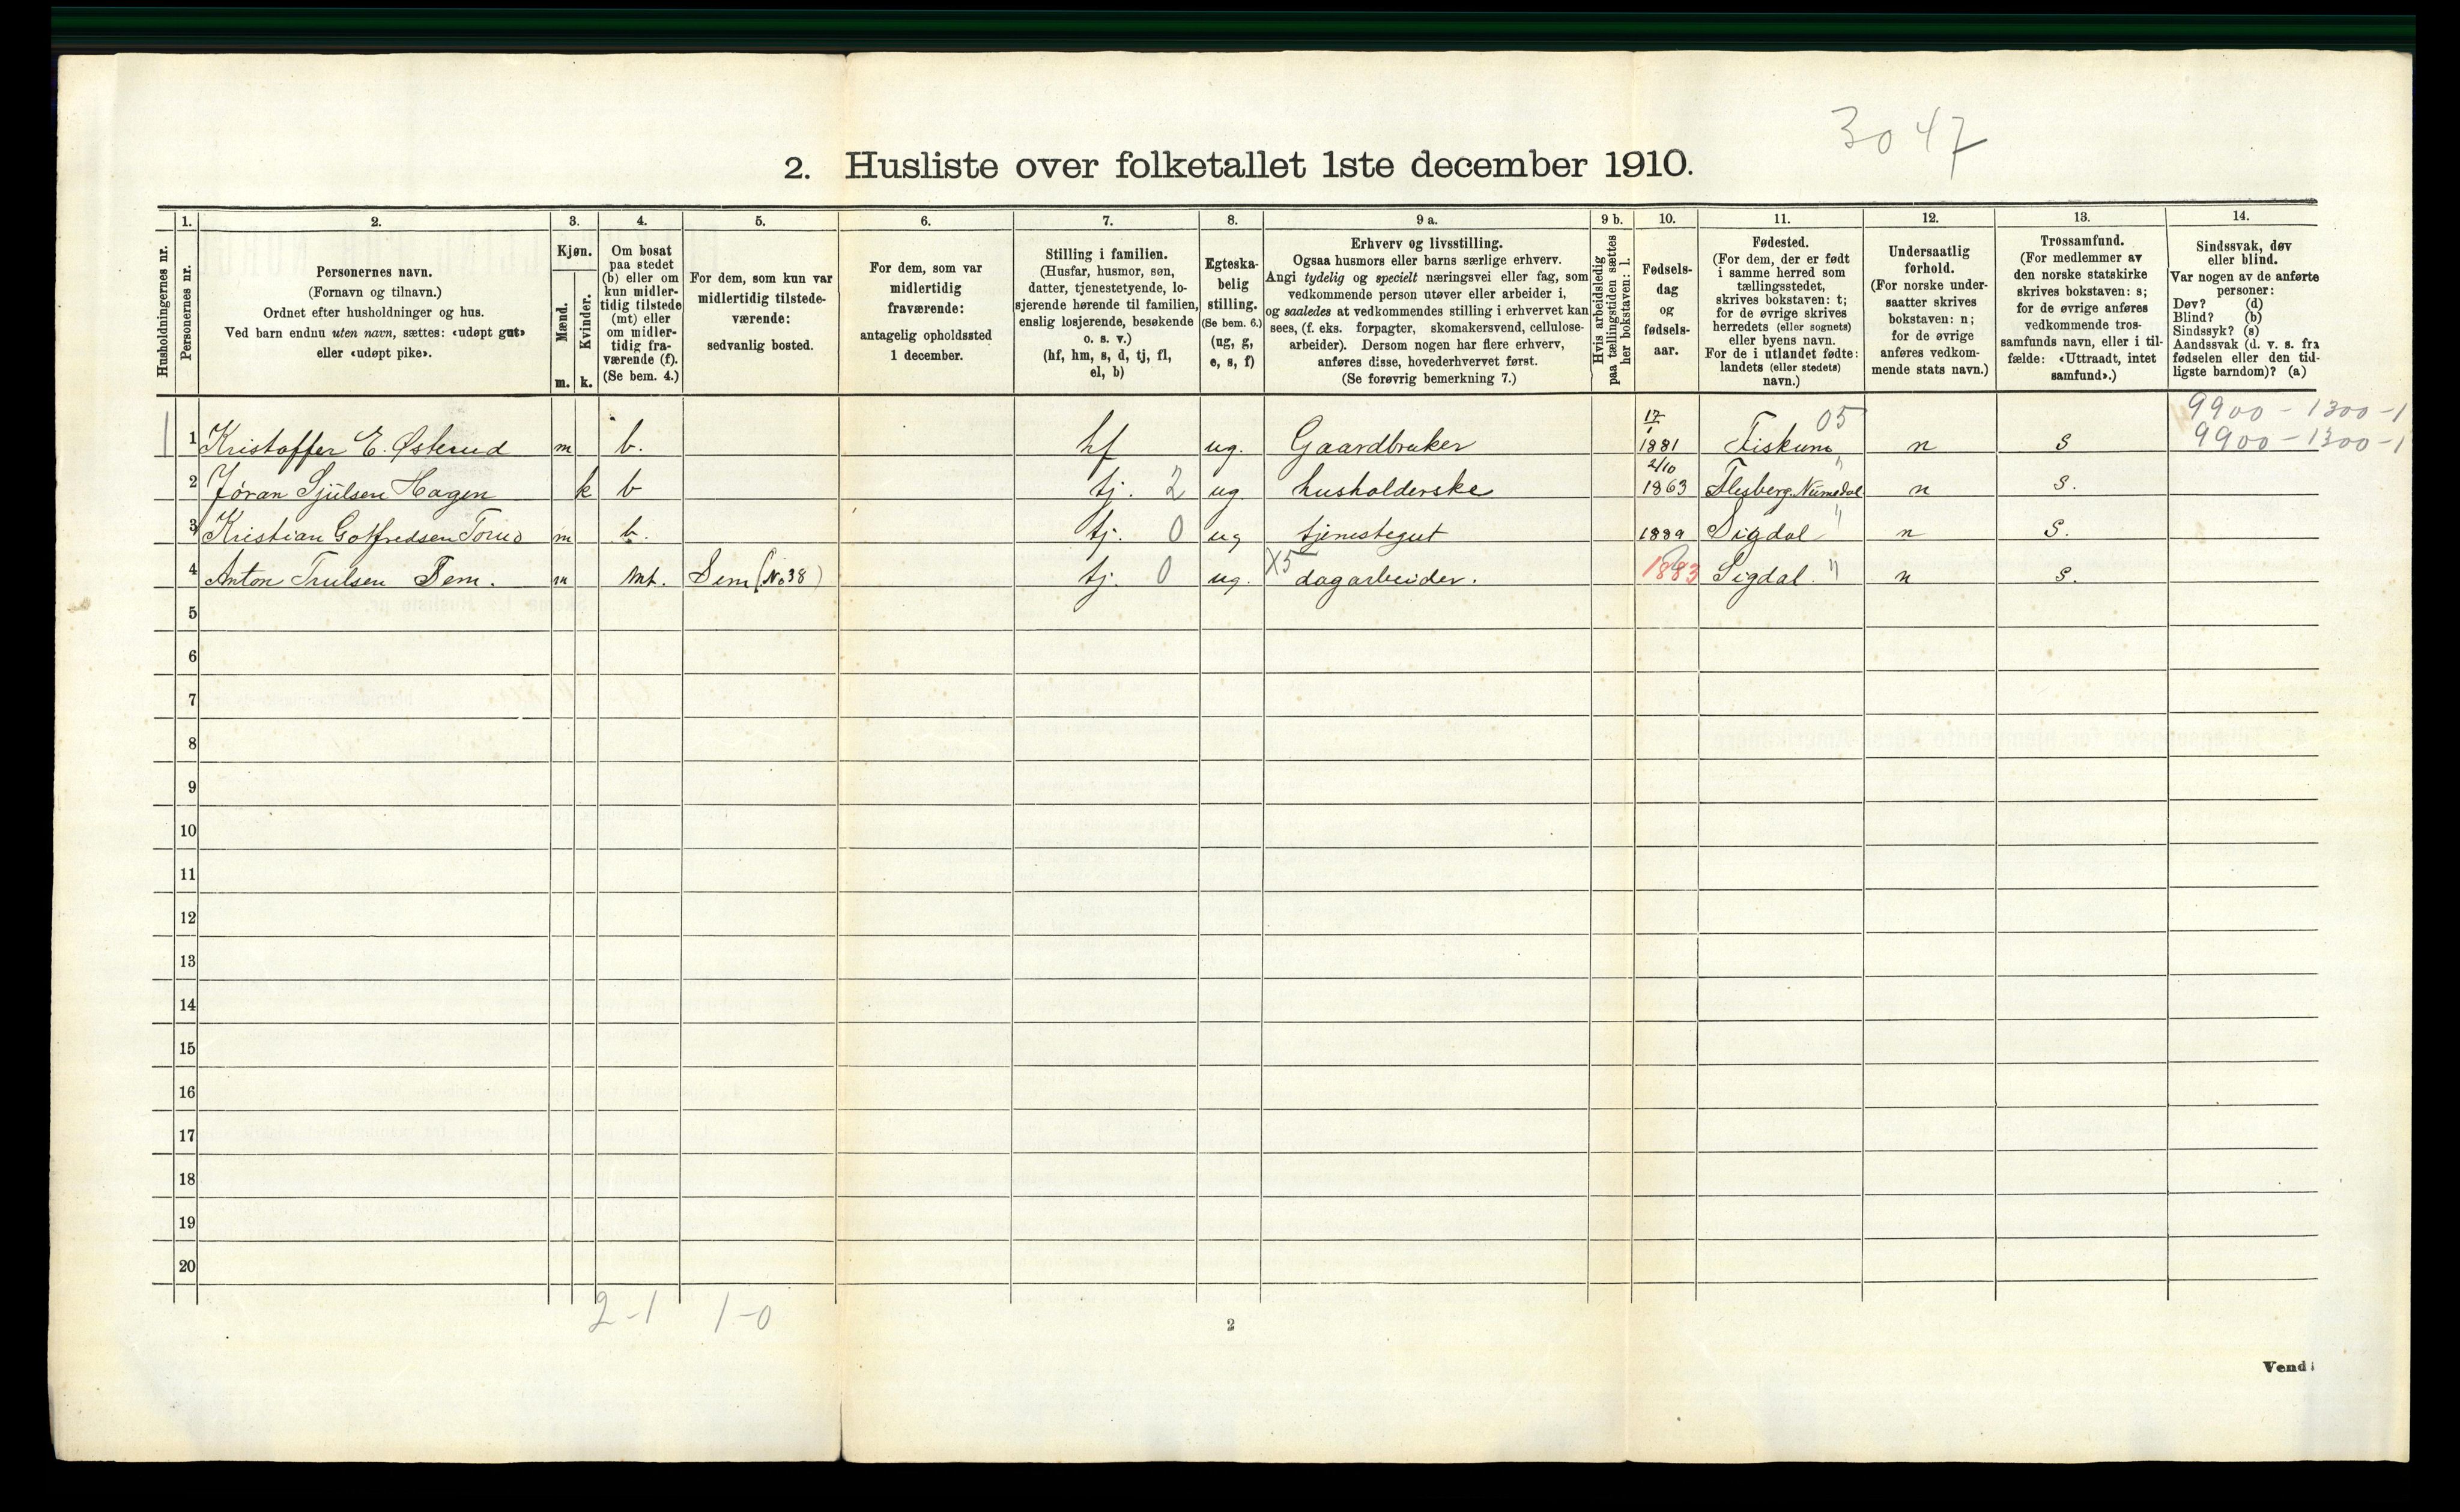 3047
2. Husliste over folketallet 1ste december 1910.
1. 2. 3. 4. 5. 6. 7. 8. 9 a. 9 b. 10. 11. 12. 13. 14.
Husholdningernes nr.
Personernes nr.
Personernes navn.
(Fornavn og tilnavn.)
Ordnet efter husholdninger og hus.
Ved barn endnu uten navn, sættes: «udøpt gut»
eller «udøpt pike».
Kjøn.
Mænd.
Kvinder.
m. k.
Om bosat
paa stedet
(b) eller om
kun midler-
tidig tilstede
(mt) eller
om midler-
tidig fra-
værende (f).
(Se bem. 4.)
For dem, som kun var
midlertidig tilstede-
værende:
sedvanlig bosted.
For dem, som var
midlertidig
fraværende:
antagelig opholdssted
1 december.
Stilling i familien.
(Husfar, husmor, søn,
datter, tjenestetyende, lo-
sjerende hørende til familien,
enslig losjerende, besøkende
o. s. v.)
(hf, hm, s, d, tj, fl,
el, b)
Egteska-
belig
stilling.
(Se bem. 6.)
(ug, g,
e, s, f)
Erhverv og livsstilling.
Ogsaa husmors eller barns særlige erhverv.
Angi tydelig og specielt næringsvei eller fag, som
vedkommende person utøver eller arbeider i,
og saaledes at vedkommendes stilling i erhvervet kan
sees, (f. eks. forpagter, skomakersvend, cellulose-
arbeider). Dersom nogen har flere erhverv,
anføres disse, hovederhvervet først.
(Se forøvrig bemerkning 7.)
Hvis arbeidsledig
paa tællingstiden sættes
her bokstaven: l.
Fødsels-
dag
og
fødsels-
aar.
Fødested.
(For dem, der er født
i samme herred som
tællingsstedet,
skrives bokstaven: t;
for de øvrige skrives
herredets (eller sognets)
eller byens navn.
For de i utlandet fødte:
landets (eller stedets)
navn.)
Undersaatlig
forhold.
(For norske under-
saatter skrives
bokstaven: n;
for de øvrige
anføres vedkom-
mende stats navn.)
Trossamfund.
(For medlemmer av
den norske statskirke
skrives bokstaven: s;
for de øvrige anføres
vedkommende tros-
samfunds navn, eller i til-
fælde: «Uttraadt, intet
samfund».)
Sindssvak, døv
eller blind.
Var nogen av de anførte
personer:
Døv? (d)
Blind? (b)
Sindssyk? (s)
Aandssvak (d. v. s. fra
fødselen eller den tid-
ligste barndom)? (a)
9900-1300-1
1 1 Kristoffer E. Østerud m b. hf ug. Gaardbruker 17/1 1881 Fiskum 05 n S 9900-1300-1
2 Jøran Sjulsen Hagen k b tj. 2 ug husholderske 2/10 1863 Flesberg. Numedal " n S.
3 Kristian Golfredsen Torud m b. tj. 0 ug tjenestegut 1889 Sigdal " n S.
4 Anton Trulsen Sem. m mt. Sem (No 38) tj. 0 ug. X5 dagarbeider. 1883 Sigdal. " n S.
5
6
7
8
9
10
11
12
13
14
15
16
17
18
19
20
2-1 1-0
2
Vend!